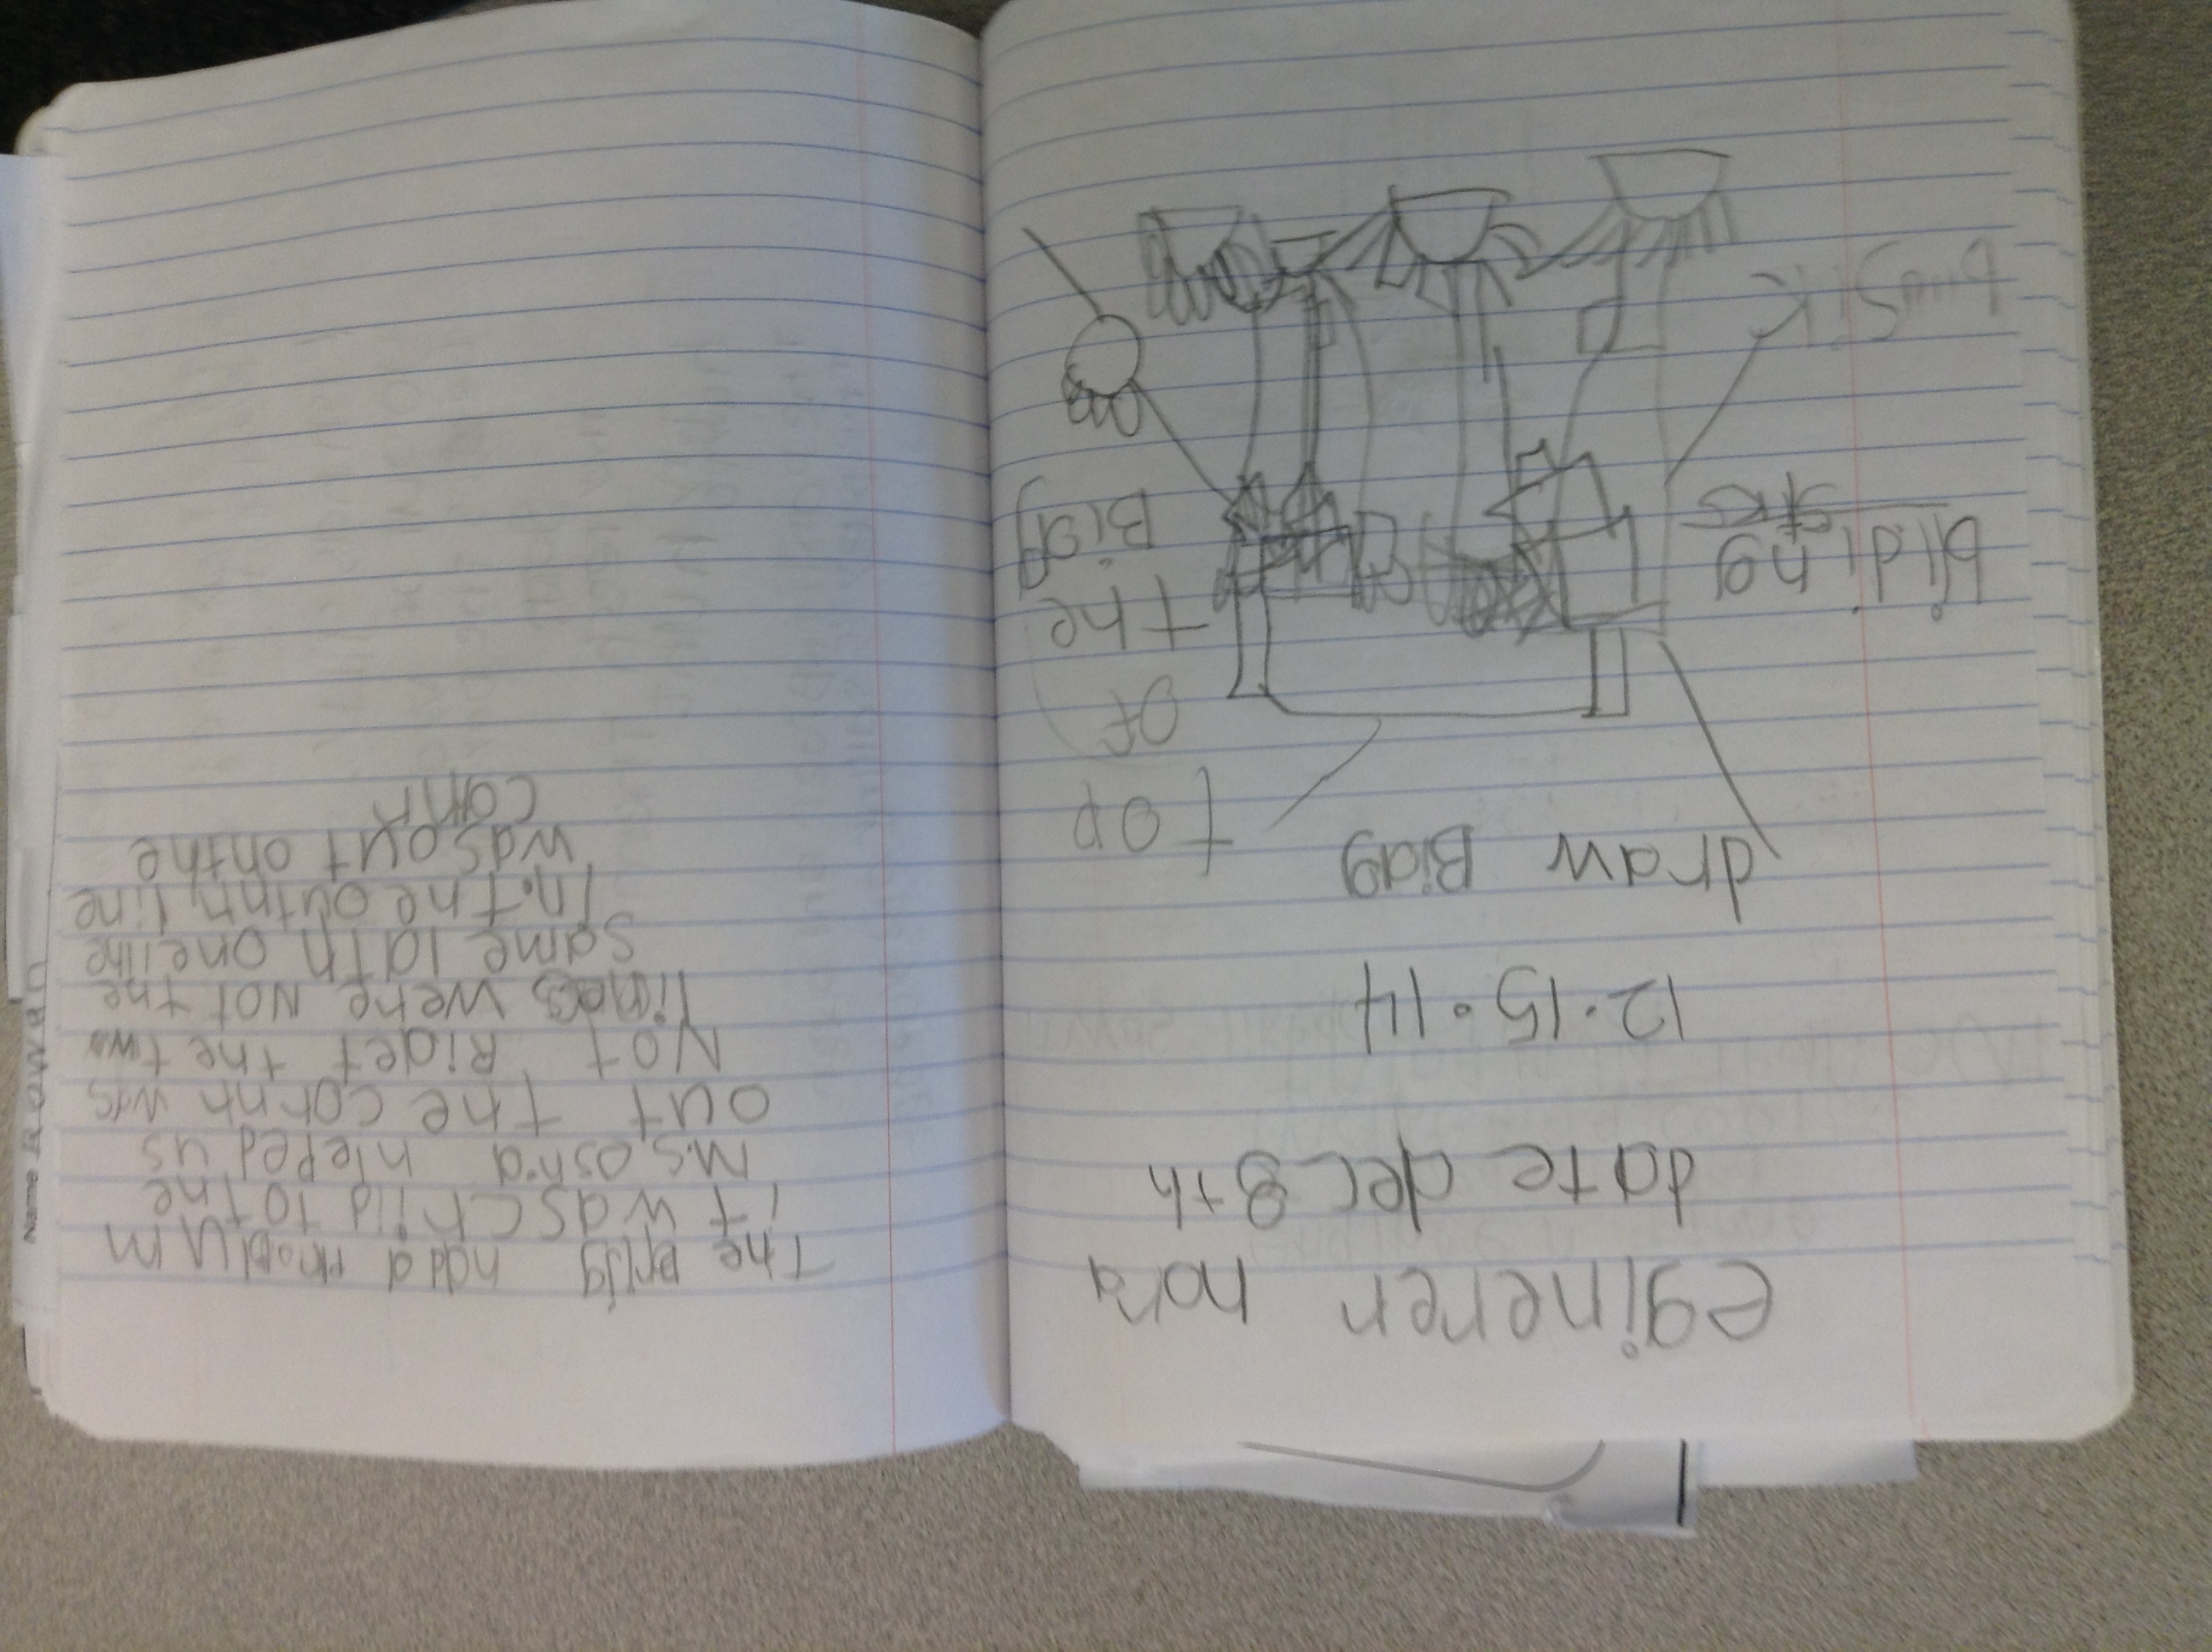 eginerer nora
date dec 8th
12.15.14
draw Bidg
top
of
the
Bidg
bliding
stks
The bridg had a problum
it was child to the
M.S. osha hleped us
out the cornh was
Not Ridet the two
lines were Not the
same lath one line
In. The outnn line
was out on the
conr
Name Rowan